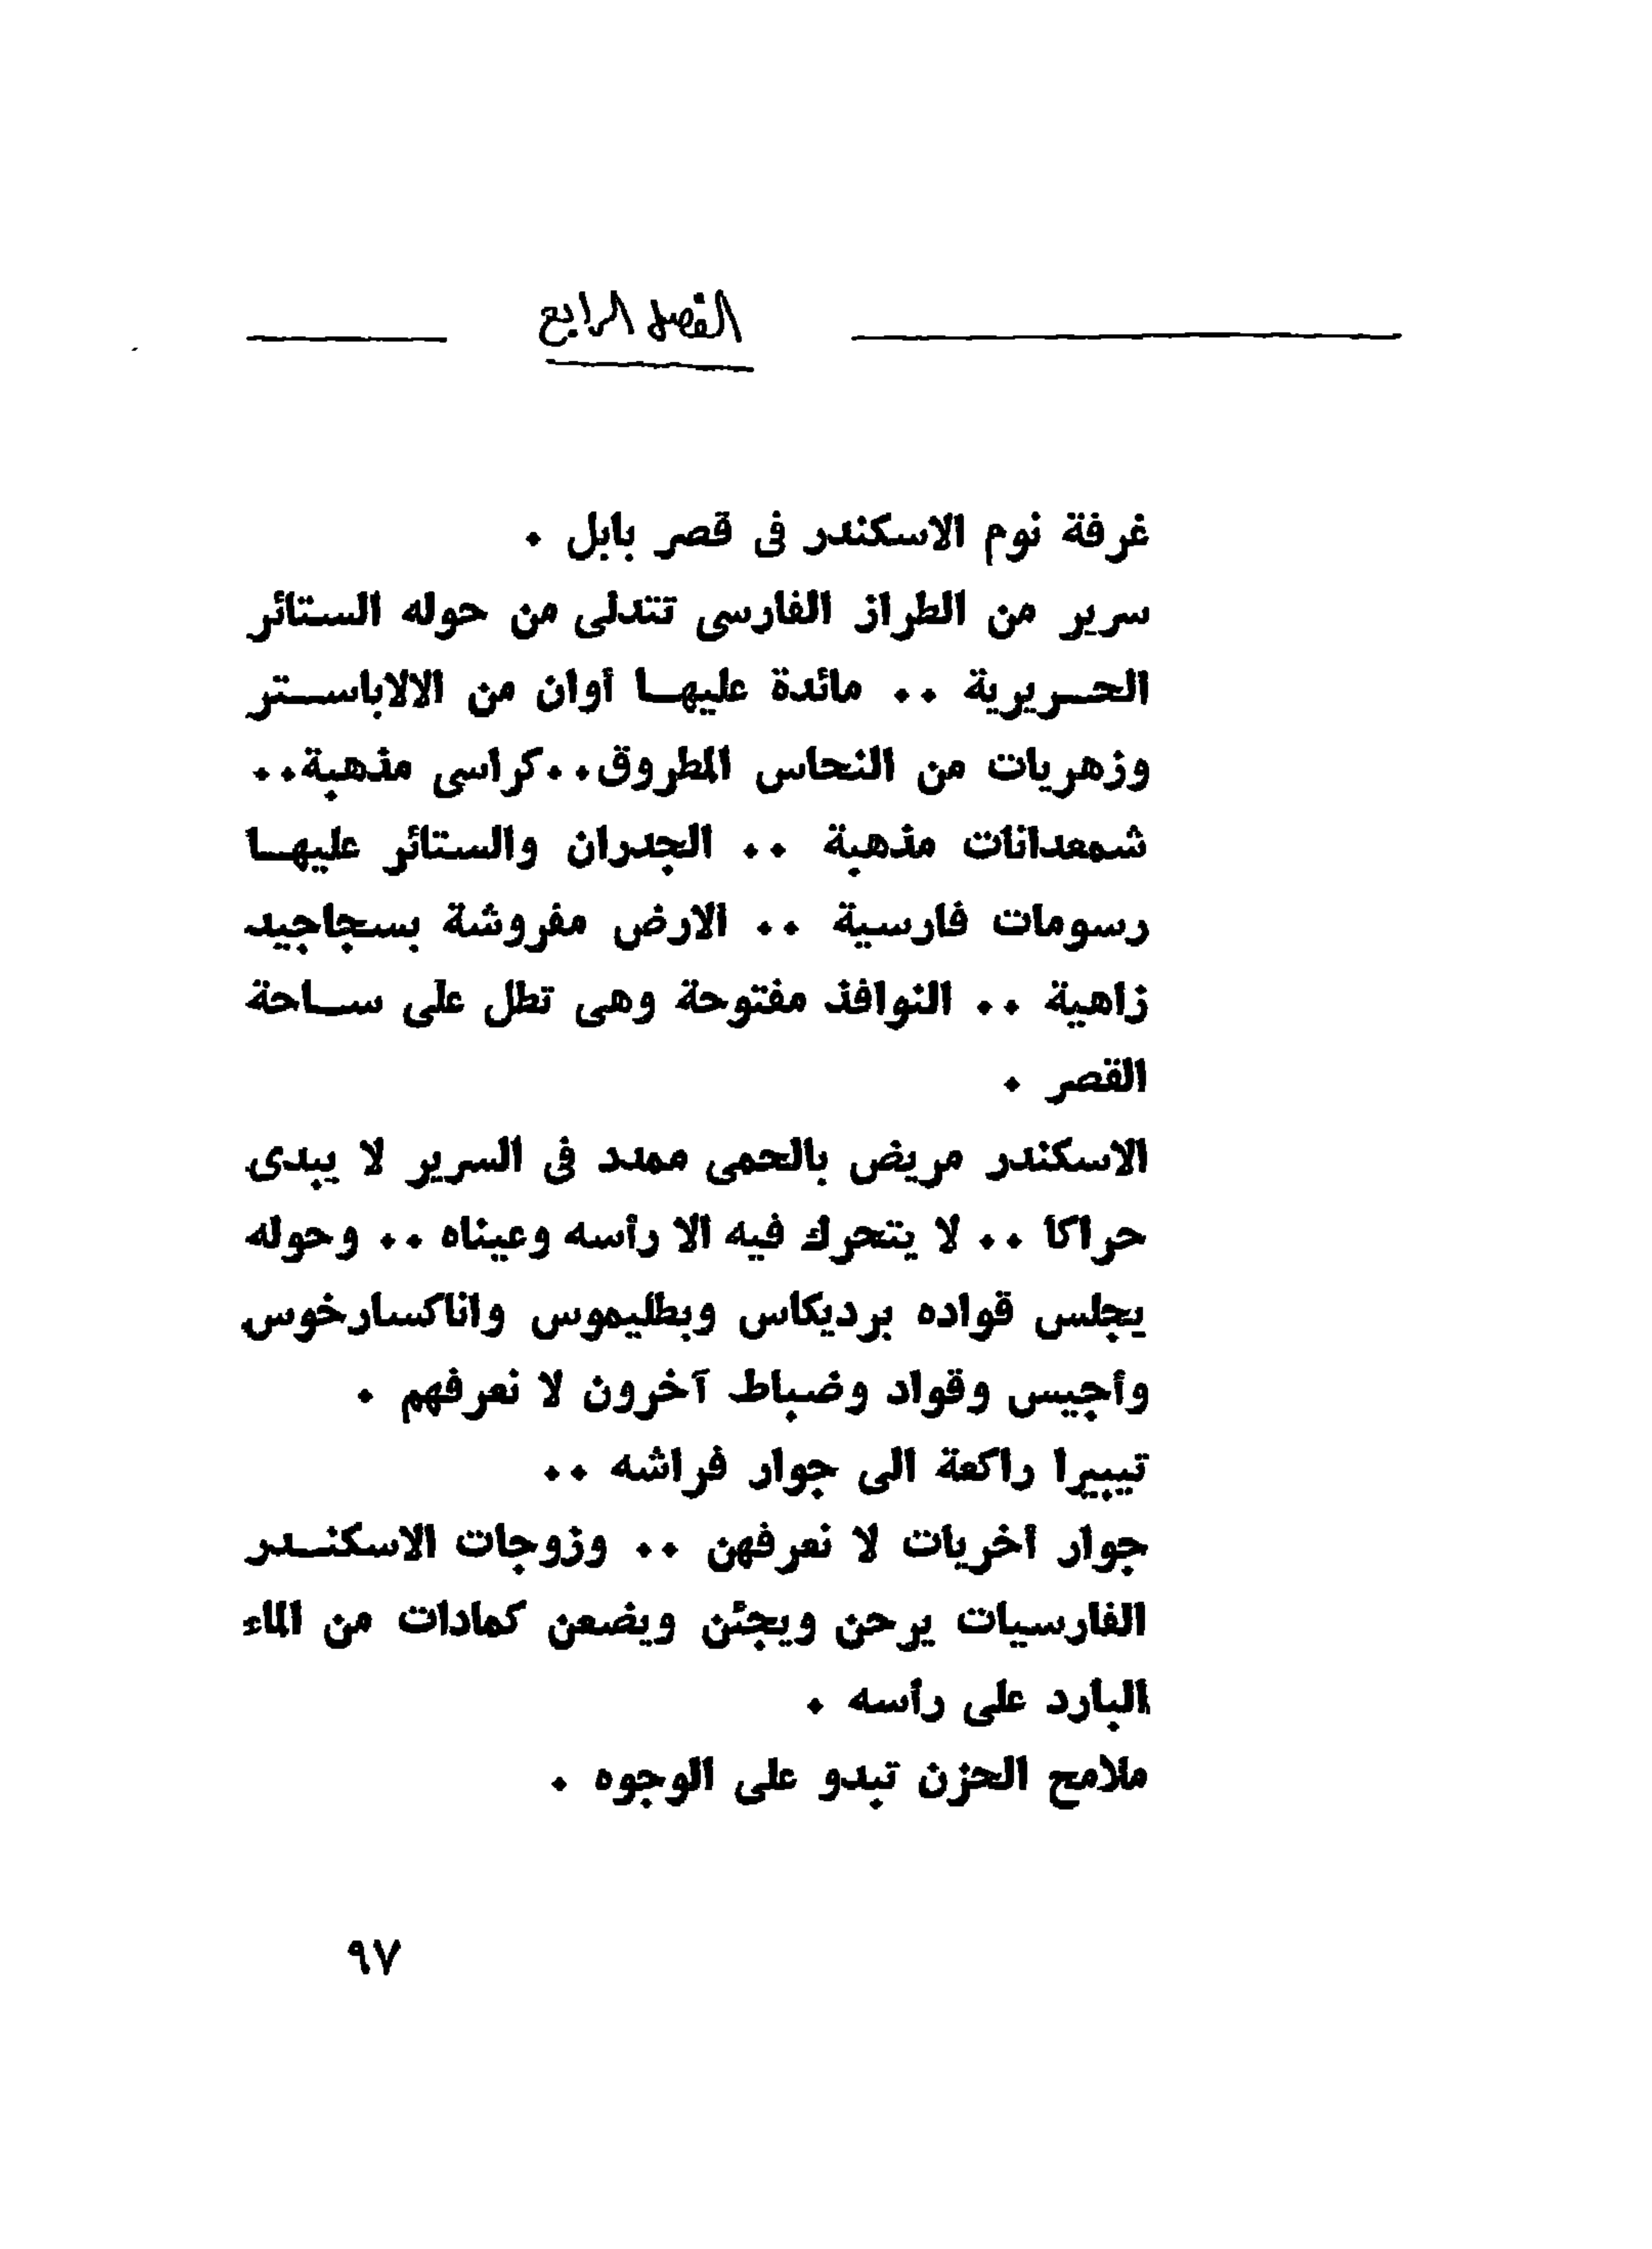 الفصل الرابع
غرفة نوم الاسكندر فى قصر بابل .
سرير من الطراز الفارسى تتدلى من حوله الستائر
الحريرية .. مائدة عليها أوان من الالاباستر
وزهريات من النحاس المطروق..كراسى مذهبة..
شمعدانات مذهبة .. الجدران والستائر عليها
رسومات فارسية .. الارض مفروشة بسجاجيد
زاهية .. النوافذ مفتوحة وهى تطل على ساحة
القصر .
الاسكندر مريض بالحمى ممدد فى السرير لا يبدى
حراكا .. لا يتحرك فيه الا رأسه وعيناه .. وحوله
يجلس قواده برديكاس وبطليموس واناكسارخوس
وأجيس وقواد وضباط آخرون لا نعرفهم .
تيبيرا راكعة الى جوار فراشه ..
جوار أخريات لا نعرفهن .. وزوجات الاسكندر
الفارسيات يرحن ويجئن ويضعن كمادات من الماء
البارد على رأسه .
ملامح الحزن تبدو على الوجوه .
٩٧